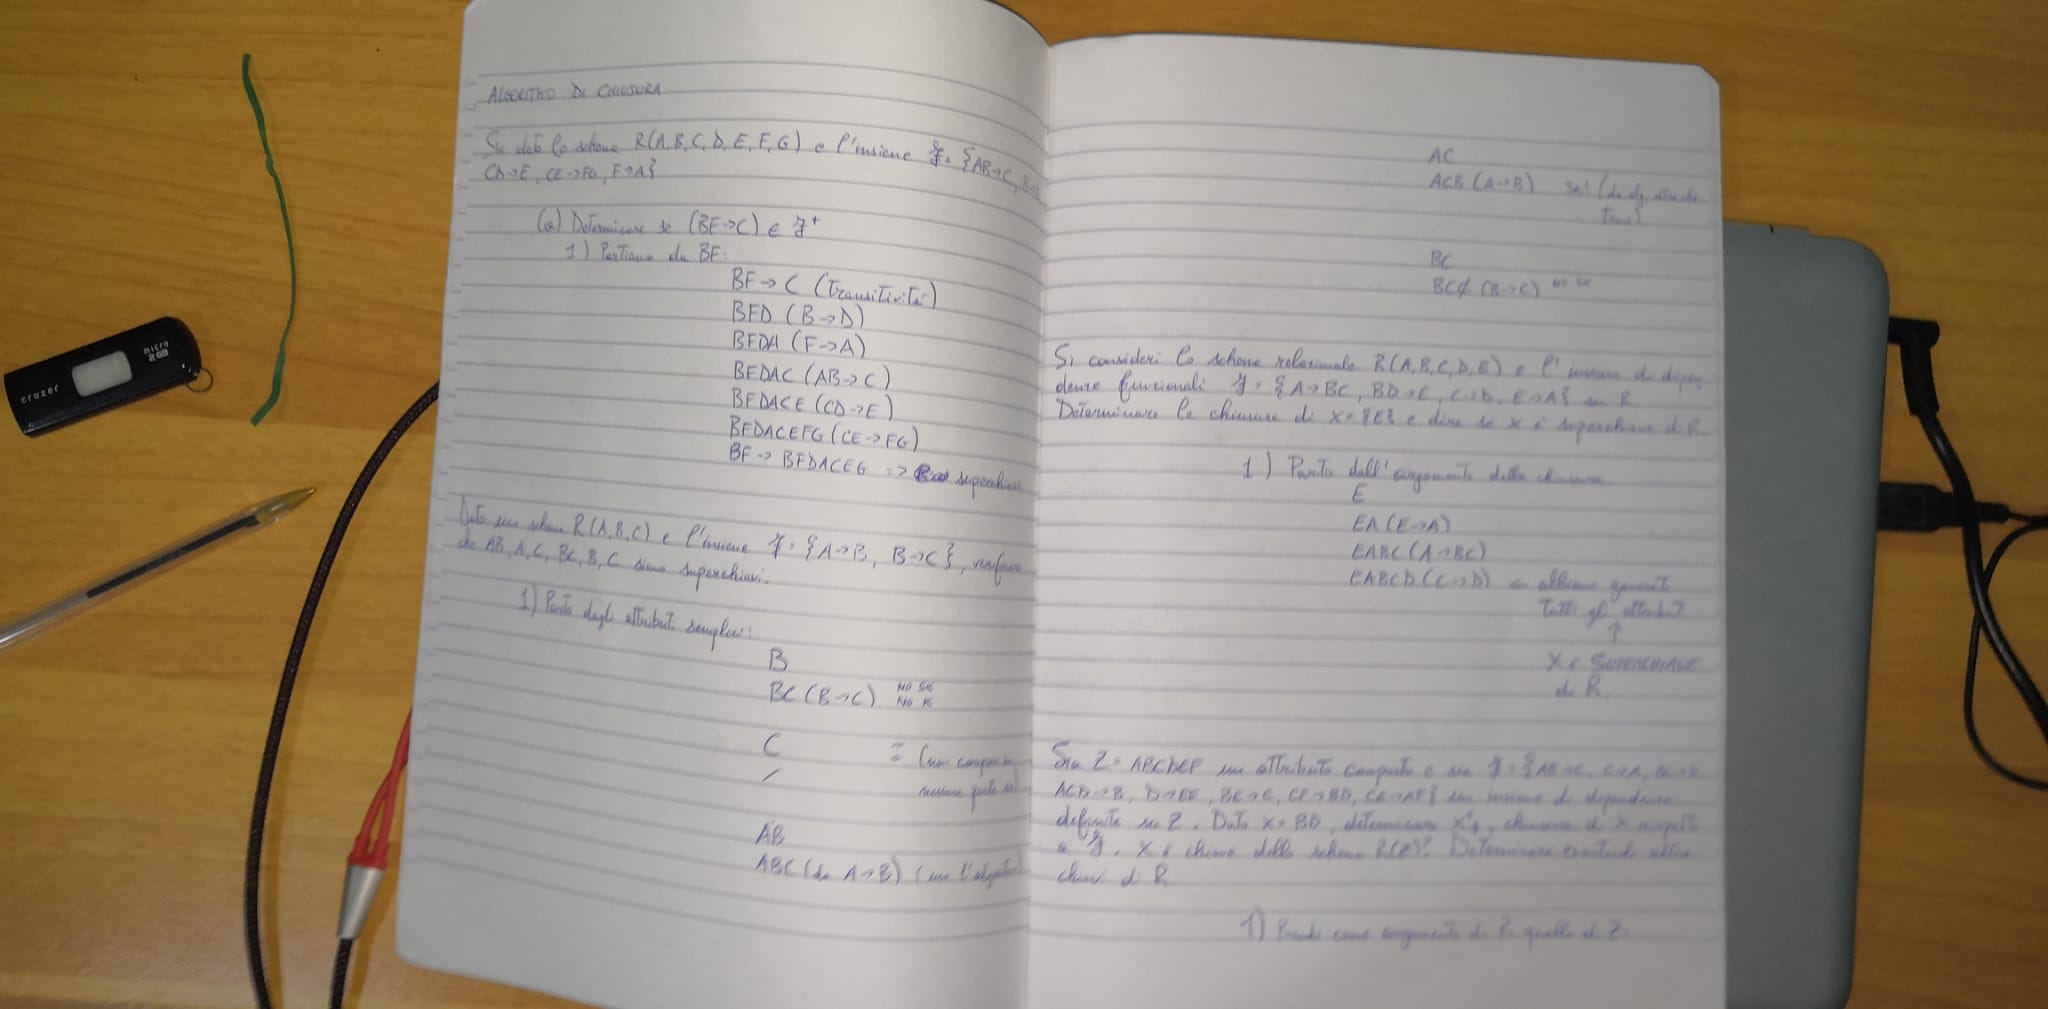 ALGORITMO DI CHIUSURA
Sia dato lo schema R(A,B,C,D,E,F,G) e l'insieme F = {AB→C, B→D
CD→E, CE→FG, F→A}
(a) Determinare se (BF→C) ∈ F+
1) Partiamo da BF:
BF→C (transitività)
BFD (B→D)
BFDA (F→A)
BFDAC (AB→C)
BFDACE (CD→E)
BFDACEFG (CE→FG)
BF→BFDACEG => superchiave
Dato uno schema R(A,B,C) e l'insieme F = {A→B, B→C}, verificare
che AB, A,C, BC, B, C siano superchiavi.
1) Parto dagli attributi semplici:
B
BC (B→C) NO SK
NO K
C = (non compare in
/ nessuna parte sx)
AB
ABC (da A→B) (use l'algoritmo)
AC
ACB (A→B) Sk!
BC
BC (B→C) NO SK
Si consideri lo schema relazionale R(A,B,C,D,E) e l'insieme di dipen
denze funzionali F = {A→BC, BD→E, C→D, E→A} su R
Determinare la chiusura di X={E} e dire se X è superchiave di R.
1) Parto dall'argomento della chiusura.
E
EA (E→A)
EABC (A→BC)
EABCD (C→D) ← abbiamo generato
tutti gl' attributi
↑
X è SUPERCHIAVE
di R.
Sia Z = ABCDEF un attributo composto e sia F = {AB→C, C→A,
ACD→B, D→EF, BE→C, CF→BD, CE→AF} un insieme di dipendenze
definite su Z. Dato X=BD, determinare X+, chiusura di X rispetto
a F. X è chiave dello schema R(Z)? Determinare eventuali altre
chiavi di R
1) Prendi come argomento di R quello di Z.
cruzer
micro
2GB